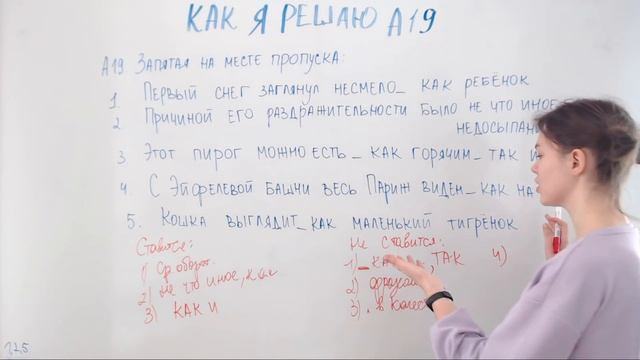 КАК Я РЕШАЮ А19
А19 Запятая на месте пропуска:
1 Первый снег заглянул несмело_ как ребёнок
2 Причиной его раздражительности было не что иное
3 Этот пирог можно есть_ как горячим_ так и
4. С Эйфелевой башни весь Париж виден_ как на
5. Кошка выглядит_ как маленький тигрёнок
Ставится:
1) Ср оборот.
2) не что иное, как
3) КАК И
Не ставится:
1) , ТАК 4)
2)
3) . в